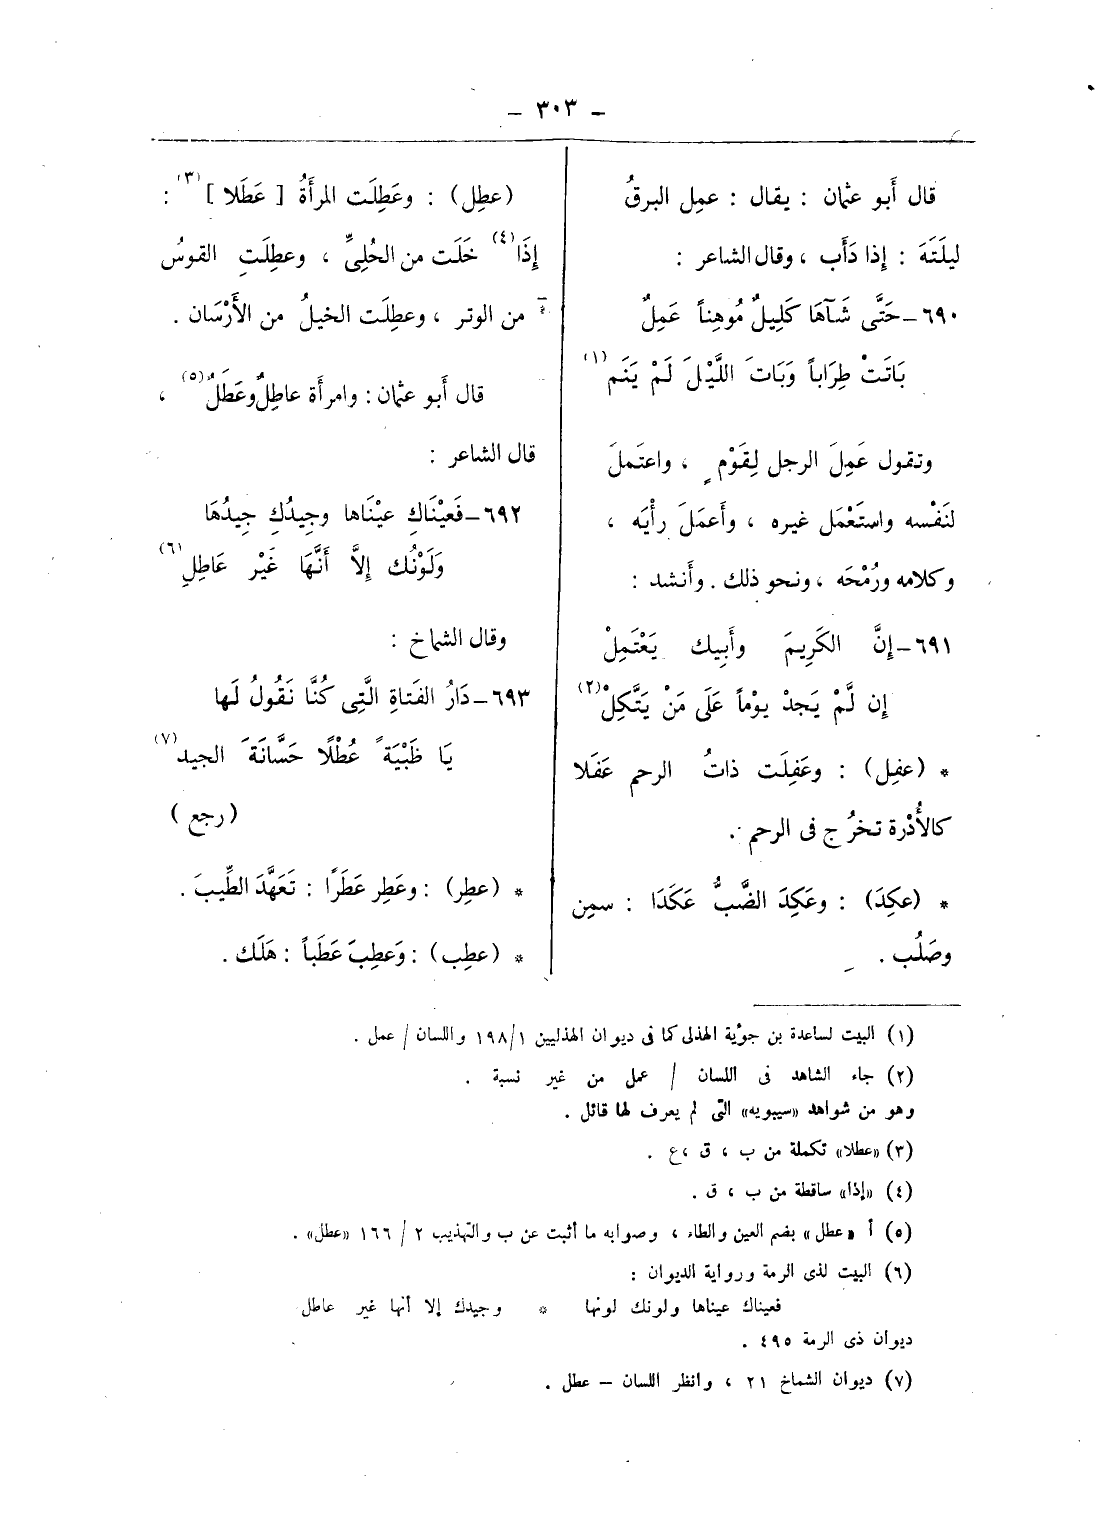 – ٣٠٣ –
قال أَبو عثمان : يقال : عمِل البرقُ
ليلَتَه : إذا دَأَب ، وقال الشاعر :
٦٩٠–حَتَّى شَآهَا كَلِيلٌ مُوهِناً عَمِلٌ
بَاتَتْ طِرَاباً وَبَاتَ اللَّيْلَ لَمْ يَنَم (١)
وتقول عَمِلَ الرجل لِقَوْمٍ ، واعتَملَ
لنَفْسه واستَعْمَل غيره ، وأَعمَلَ رأْيَه ،
وكلامه ورُمْحَه ، ونحو ذلك . وأَنشد :
٦٩١–إِنَّ الكَرِيمَ وأَبِيك يَعْتَمِلْ
إن لَّمْ يَجدْ يوْماً عَلَى مَنْ يَتَّكِلْ (٢)
* (عفِل) : وعَفِلَت ذاتُ الرحم عَفَلا
كالأُدْرة تخرُج فى الرحم .
* (عكِدَ) : وعَكِدَ الضَّبُّ عَكَدَا : سمِن
وصَلُب .
(عطِل) : وعَطِلَت المرأَةُ [ عَطَلا ] (٣) :
إذَا (٤) خَلَت من الحُلِىِّ ، وعطِلَتِ القوسُ
من الوتر ، وعطِلَت الخيلُ من الأَرْسَان .
قال أَبو عثمان : وامرأَة عاطِلٌ وعَطَلٌ (٥) ،
قال الشاعر :
٦٩٢–فَعيْنَاكِ عيْنَاها وجِيدُكِ جِيدُهَا
وَلَوْنُك إلاَّ أَنَّهَا غَيْر عَاطِلِ (٦)
وقال الشماخ :
٦٩٣–دَارُ الفَتاةِ الَّتِى كُنَّا نَقُولُ لَها
يَا ظَبْيَةً عُطْلًا حَسَّانَةَ الجيد (٧)
(رجع)
* (عطِر) : وعَطِر عَطَرًا : تَعَهَّدَ الطِّيبَ .
* (عطِب) : وَعطِبَ عَطَباً : هَلَك .
(١) البيت لساعدة بن جوُّية الهذلى كما فى ديوان الهذليين ١٩٨/١ واللسان / عمل .
(٢) جاء الشاهد فى اللسان / عمل من غير نسبة .
وهو من شواهد «سيبويه» التى لم يعرف لها قائل .
(٣) «عطلا» تكملة من ب ، ق ،ع .
(٤) «إذا» ساقطة من ب ، ق .
(٥) أ «عطل» بضم العين والطاء ، وصوابه ما أثبت عن ب والتهذيب ٢ / ١٦٦ «عطل» .
(٦) البيت لذى الرمة ورواية الديوان :
فعيناك عيناها ولونك لونها * وجيدك إلا أنها غير عاطل
ديوان ذى الرمة ٤٩٥ .
(٧) ديوان الشماخ ٢١ ، وانظر اللسان – عطل .